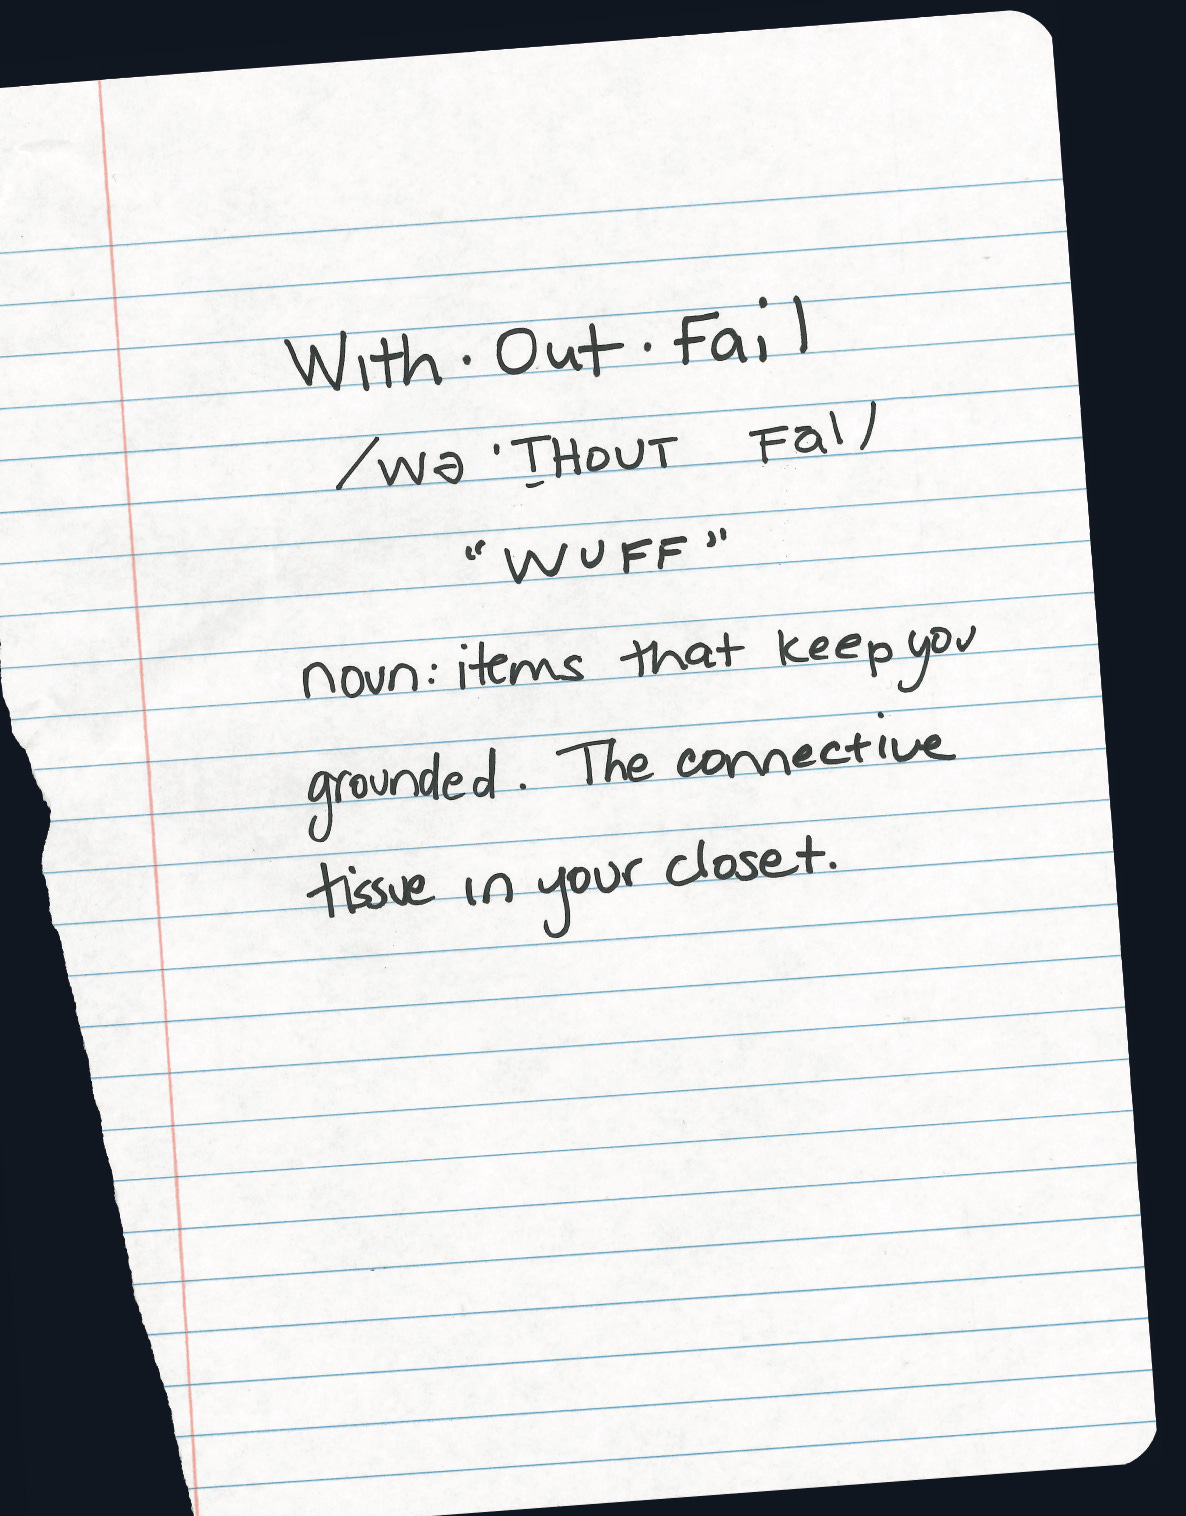 With · Out · Fail
/wə 'T̲HOUT Fal/
“WUFF”
noun: items that keep you
grounded. The connective
tissue in your closet.